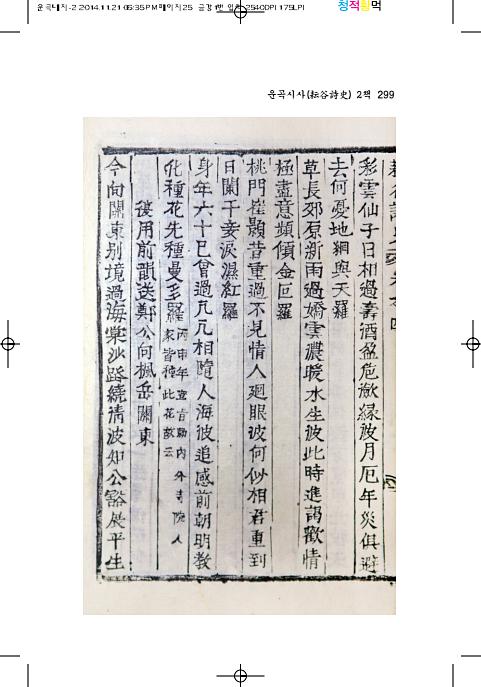 운곡대지-2 2014.11.21 06:35 PM 페이지25
2540DPI 175LPI
청적황먹
운곡시사(耘谷詩史) 2책 299
彩雲仙子日相過壽酒盈危㵩緣波月厄年災俱避
去何憂地網與天羅
草長郊原新雨過嬌雲濃暖水生波此時進謁歡情
極盡意頻傾金叵羅
桃門崔顥昔重過不見情人廻眼波何似相君重到
日闌干妾淚濕紅羅
身年六十已曾過凢凢相隨人海波追感前朝明敎
化種花先種曼多羅 丙申年宣旨勒內外寺院人家皆種此花故云
復用前韻送鄭公向楓岳關東
今向關東別境過海棠沙路繞淸波知公豁展平生